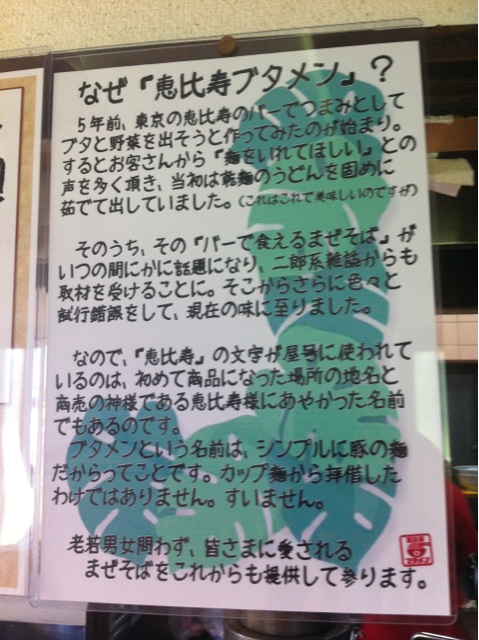 なぜ『恵比寿ブタメン』？
5年前、東京の恵比寿のバーでつまみとして
ブタと野菜を出そうと作ってみたのが始まり。
するとお客さんから『麺をいれてほしい』との
声を多く頂き、当初は乾麺のうどんを固めに
茹でて出していました。（これはこれで美味しいのですが）
そのうち、その『バーで食えるまぜそば』が
いつの間にかに話題になり、二郎系雑誌からも
取材を受けることに。そこからさらに色々と
試行錯誤をして、現在の味に至りました。
なので、『恵比寿』の文字が屋号に使われて
いるのは、初めて商品になった場所の地名と
商売の神様である恵比寿様にあやかった名前
でもあるのです。
ブタメンという名前は、シンプルに豚の麺
だからってことです。カップ麺から拝借した
わけではありません。すいません。
老若男女問わず、皆さまに愛される
まぜそばをこれからも提供して参ります。